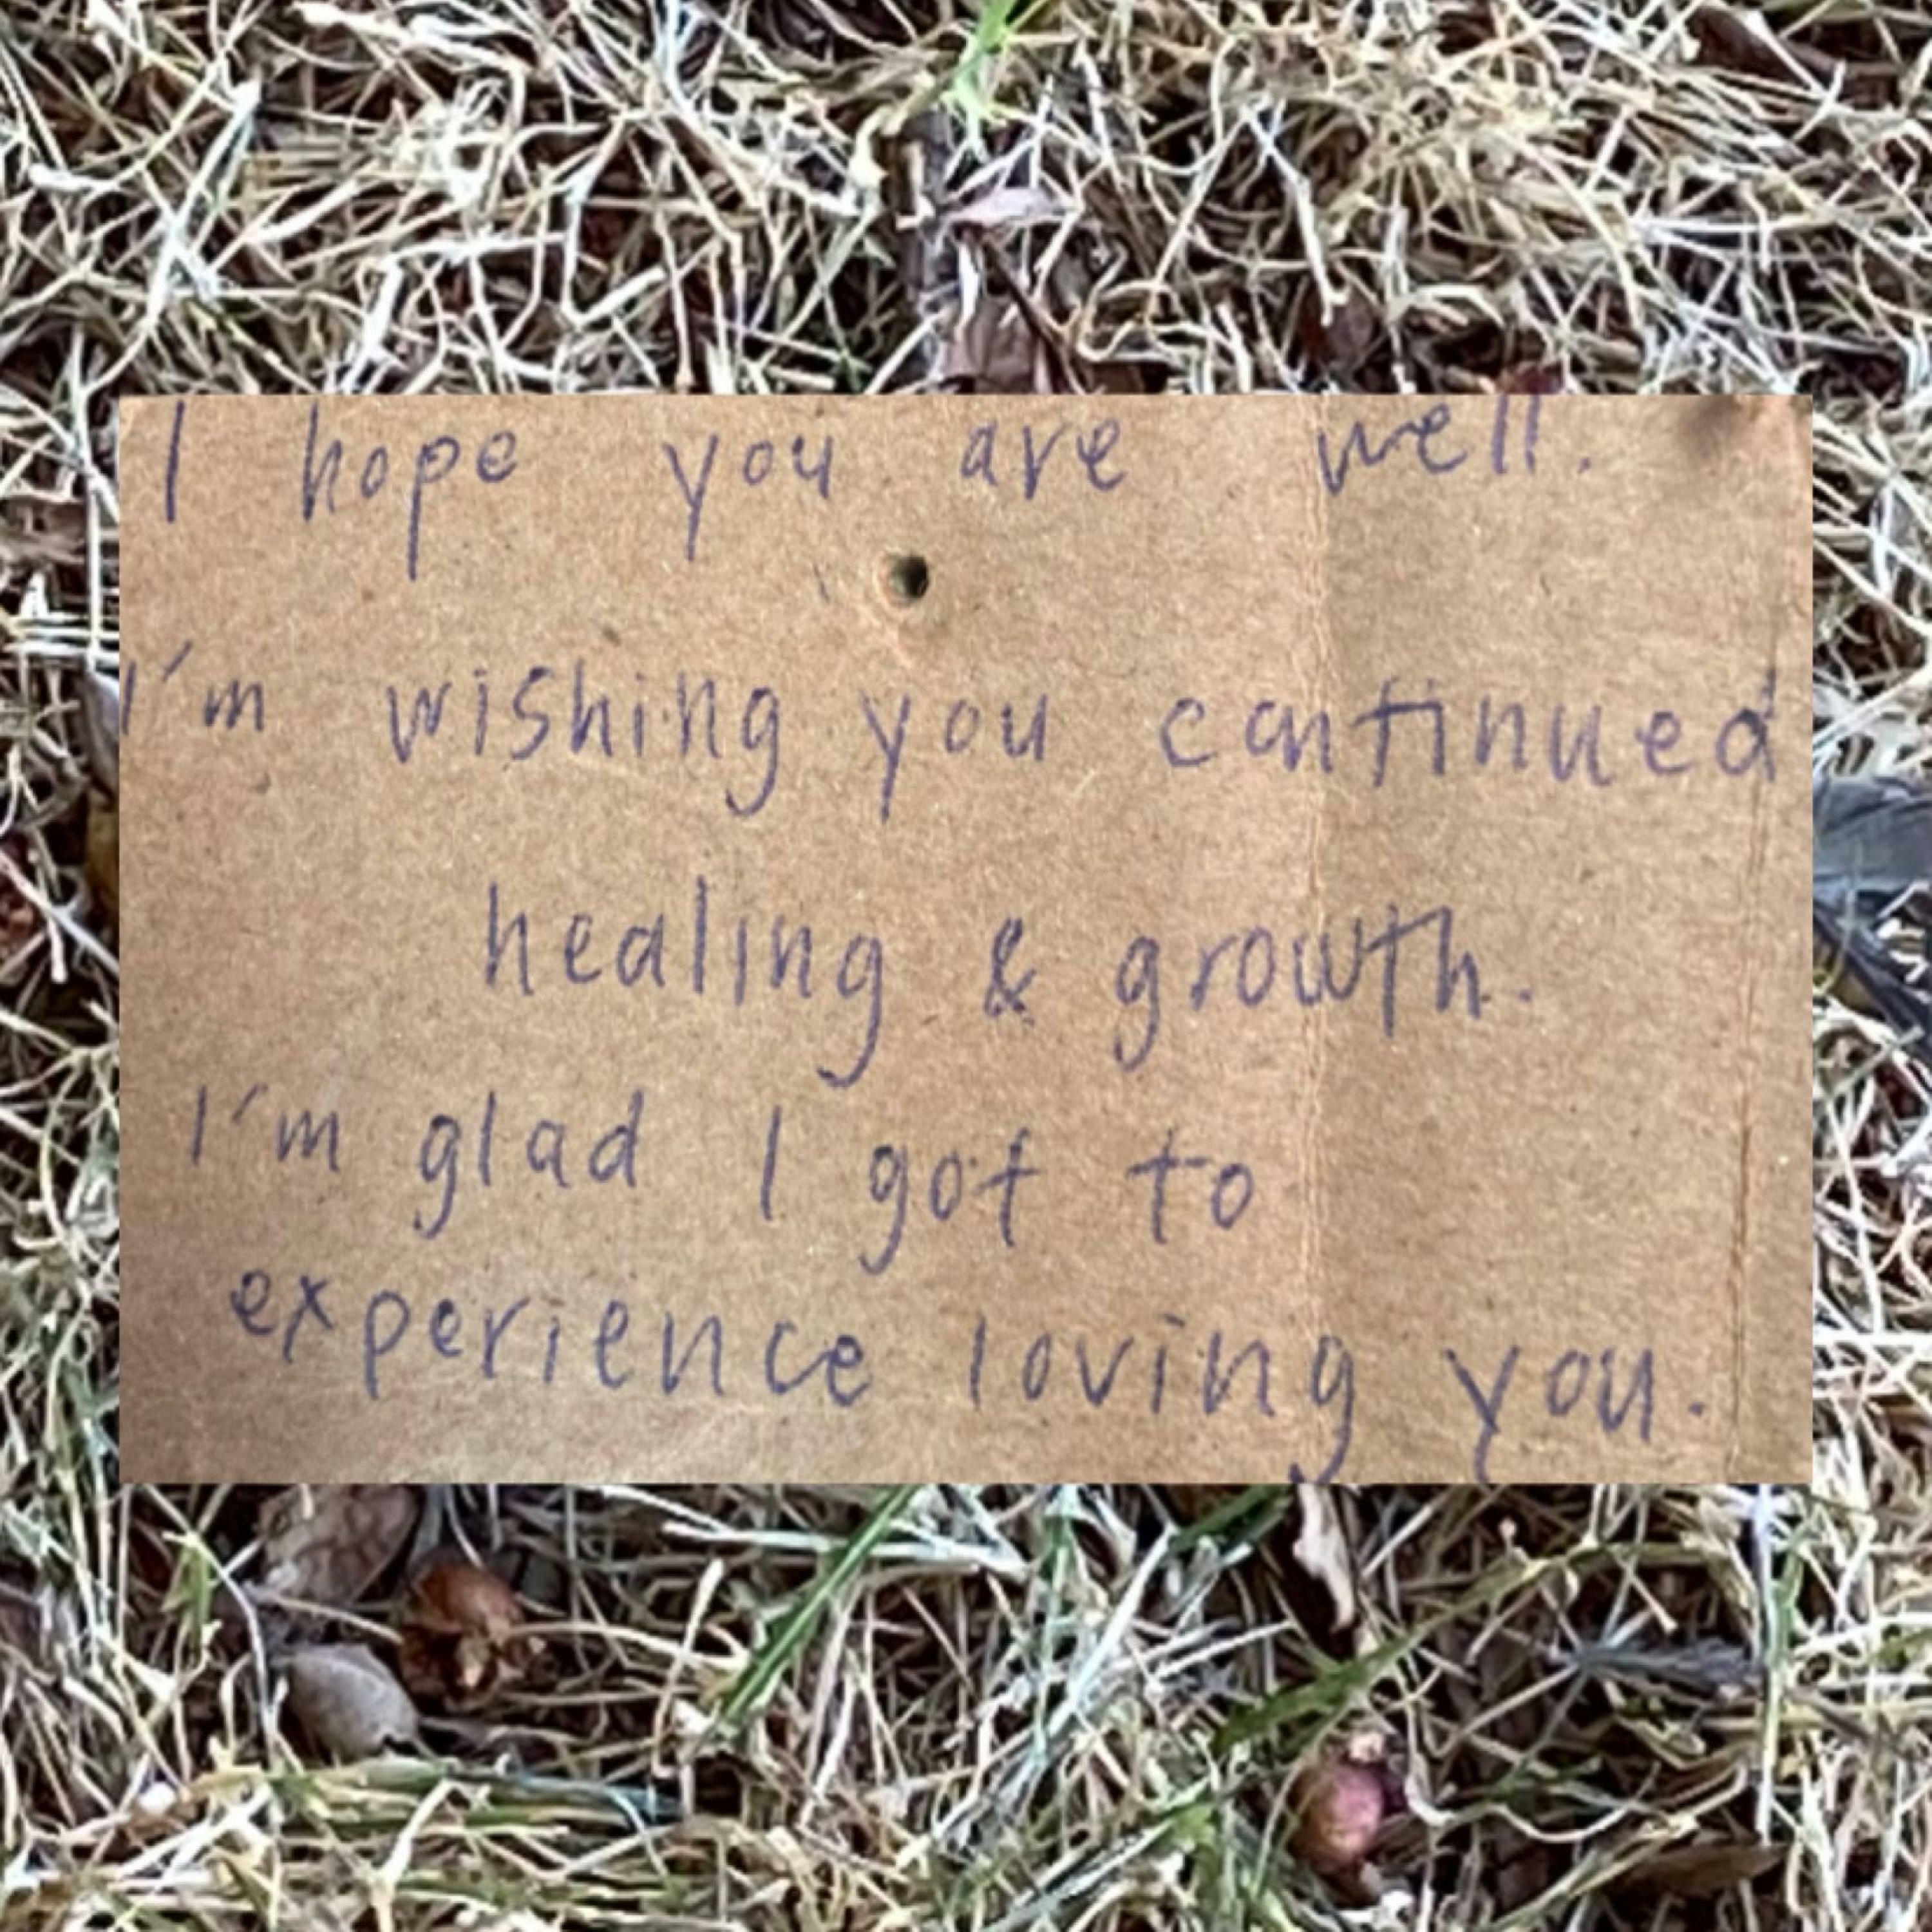 I hope you are well.
I'm wishing you continued
healing & growth.
I'm glad I got to
experience loving you.